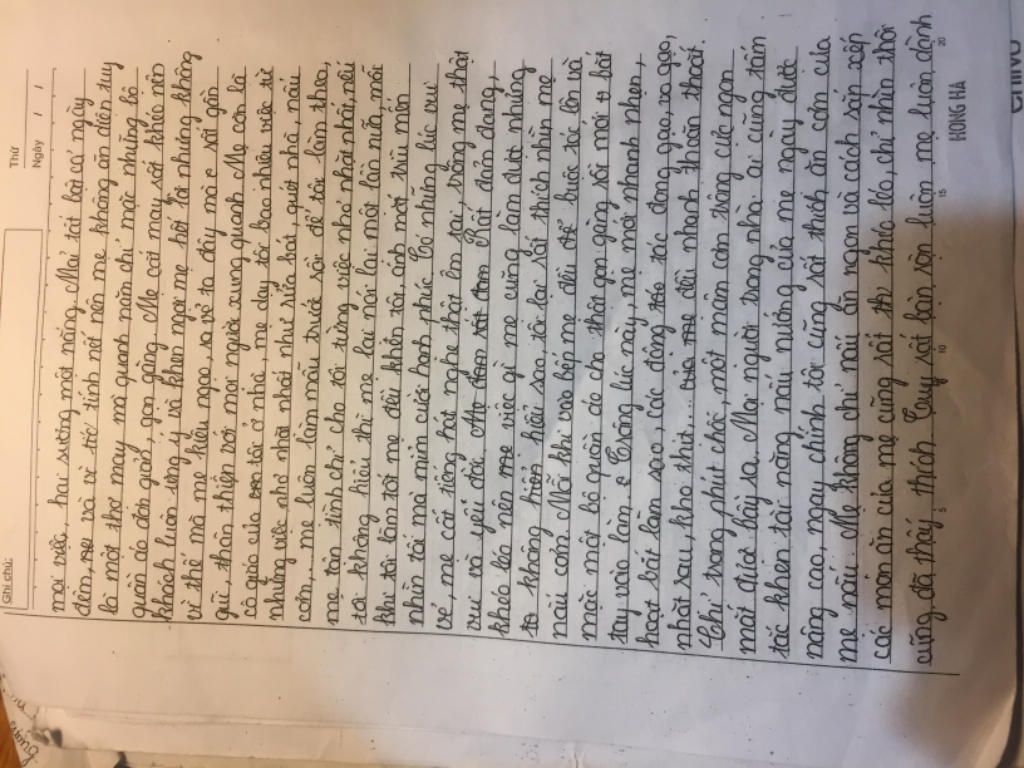 Thứ
Ngày / /
Ghi chú:
mọi việc, hai sương một nắng. Mai tất bật cả ngày
đêm, mẹ và vì tố tính nết nên mẹ không ăn diện tuy
là một thợ may mà quanh năm chỉ mặc những bộ
quần áo đơn giản, gọn gàng. Mẹ cắt may rất khéo nên
khách luôn ưng ý và khen ngợi mẹ hết lời nhưng không
vì thế mà mẹ kiêu ngạo, ra vẻ ta đây mà rất gần
gũi, thân thiện với mọi người xung quanh. Mẹ còn là
cô giáo của tôi ở nhà, mẹ dạy tôi bao nhiêu việc từ
những việc nhỏ nhặt nhất như rửa bát, quét nhà, nấu
cơm,... mẹ luôn làm mẫu trước rồi để tôi làm theo,
mẹ tận tình chỉ cho tôi từng việc nhỏ nhặt nhất, nếu
tôi không hiểu thì mẹ lại nói lại một lần nữa, mỗi
khi tôi làm tốt mẹ đều khen tôi, ánh mắt trìu mến
nhìn tôi mà mỉm cười hạnh phúc. Có những lúc vui
vẻ, mẹ cất tiếng hát nghe thật êm tai, trông mẹ thật
vui và yêu đời. Rất đảm đang,
khéo léo nên việc gì mẹ cũng làm dựt nhưng
to không hiểu sao, tôi lại rất thích nhìn mẹ
nấu cơm. Mỗi khi vào bếp mẹ đều buộc tóc lên và
mặc một bộ quần áo cho thật gọn gàng rồi mới bắt
tay vào làm. Trông lúc này, mẹ mới nhanh nhẹn,
hoạt bát làm sao, các động tác đong gạo, vo gạo,
nhặt rau, kho thịt... đều nhanh thoăn thoắt.
Chỉ trong phút chốc, một mâm cơm trông cực ngon
mắt được bày ra. Mọi người trong nhà ai cũng tấm
tắc khen tài năng nấu nướng của mẹ ngày được
nâng cao, ngay chính tôi cũng rất thích ăn cơm của
mẹ nấu. Mẹ không chỉ nấu ăn ngon và cách sắp xếp
các món ăn của mẹ cũng rất tỉ khéo léo, chỉ nhìn thôi
cũng đã thấy thích. Tuy rất bận rộn luôn mẹ luôn dành
5 10 15 20
HONG HA